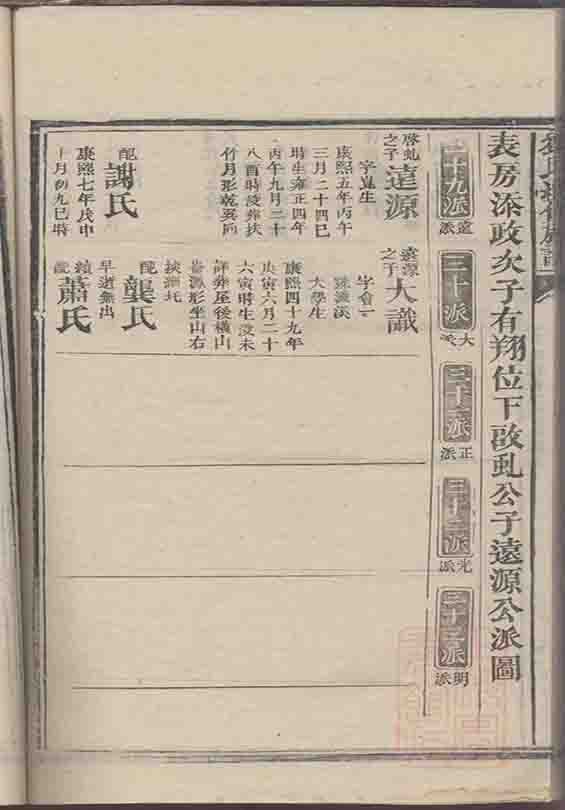 表房添政次子有翔位下啟虬公子遠源公派圖
二十九派
遠派
三十派
大派
三十一派
正派
三十二派
光派
三十三派
明派
啓虬之子
遠源
字崑生
康熙五年丙午
三月二十四巳
時生雍正四年
丙午九月二十
八酉時歿葬扶
竹月形乾巽向
配
謝氏
康熙七年戊申
十月初九巳時
遠源之子
大識
字會一
大學生
康熙四十九年
庚寅六月二十
六寅時生歿未
詳葬屋後橫山
源形坐山右
配
龔氏
早逝無出
續
蕭氏